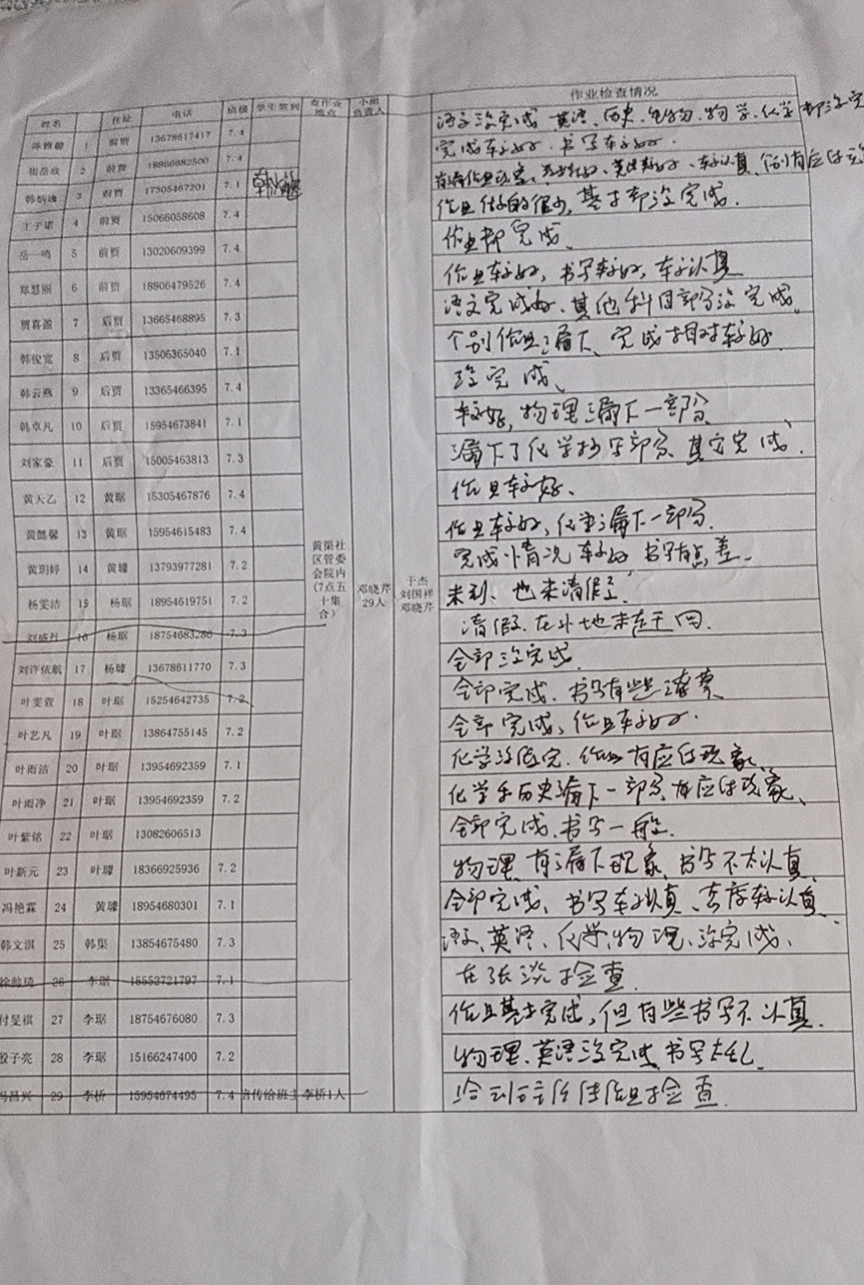 姓名 住址 电话 班级 学生签到 查作业地点 小组负责人 作业检查情况
1 前贾 13678617417 7.4 语文没完成 英语、历史、生物、物学、化学都没完
2 前贾 18866882500 7.4 完成较好、书写较好.
3 前贾 17305467201 7.1
王子诺 4 前贾 15066058608 7.4 作业做的很少,基本都没完成.
岳一鸣 5 前贾 13020609399 7.4 作业都完成、
郑慧丽 6 前贾 18806479526 7.4 作业较好,书写较好,较认真
贾喜盈 7 后贾 13665468895 7.3 语文完成好、其他科目部分没完成。
韩俊宽 8 后贾 13506365040 7.1 个别作业漏下、完成相对较好.
韩云燕 9 后贾 13365466395 7.4 没完成、
韩卓凡 10 后贾 15954673841 7.1 较好,物理漏下一部分
刘家豪 11 后贾 15005463813 7.3 漏下了化学抄写部分、其它完成.
黄天乙 12 黄琚 15305467876 7.4 作业较好、
黄懿馨 13 黄琚 15954615483 7.4 作业较好,化学漏下一部分.
黄玥婷 14 黄璩 13793977281 7.2 完成情况较好 书写有点差.
杨雯洁 15 杨琚 18954619751 7.2 未到、也未请假.
刘盛升 16 杨琚 18754683286 7.3 请假.在外地未赶回.
刘许依航 17 杨璩 13678611770 7.3 全部没完成.
叶雯萱 18 叶琚 15254642735 7.2 全部完成、书写有些潦草
叶艺凡 19 叶琚 13864755145 7.2 全部完成,作业较好.
叶雨洁 20 叶琚 13954692359 7.1 化学没做完.作业有应付现象、
叶雨净 21 叶琚 13954692359 7.2 化学和历史漏下一部分,有应付现象、
叶紫铭 22 叶琚 13082606513 全部完成.书写一般.
叶新元 23 叶璩 18366925936 7.2 物理、有漏下现象、书写不太认真
冯艳霖 24 黄璩 18954680301 7.1 全部完成、书写较认真、
韩文淇 25 韩渠 13854675480 7.3 语文、英语、化学、物理、没完成、
26 李琚 15552721797 7.1 在张淡检查.
付昊祺 27 李琚 18754676080 7.3 作业基本完成,但有些书写不认真.
殷子亮 28 李琚 15166247400 7.2 物理、英语没完成、书写太乱.
冯昌兴 29 李桥 15954674495 7.4 李桥1人
黄渠社
区管委
会院内
(7点五
十集
合)
邓晓芹
29人
于杰
刘国祥
邓晓芹